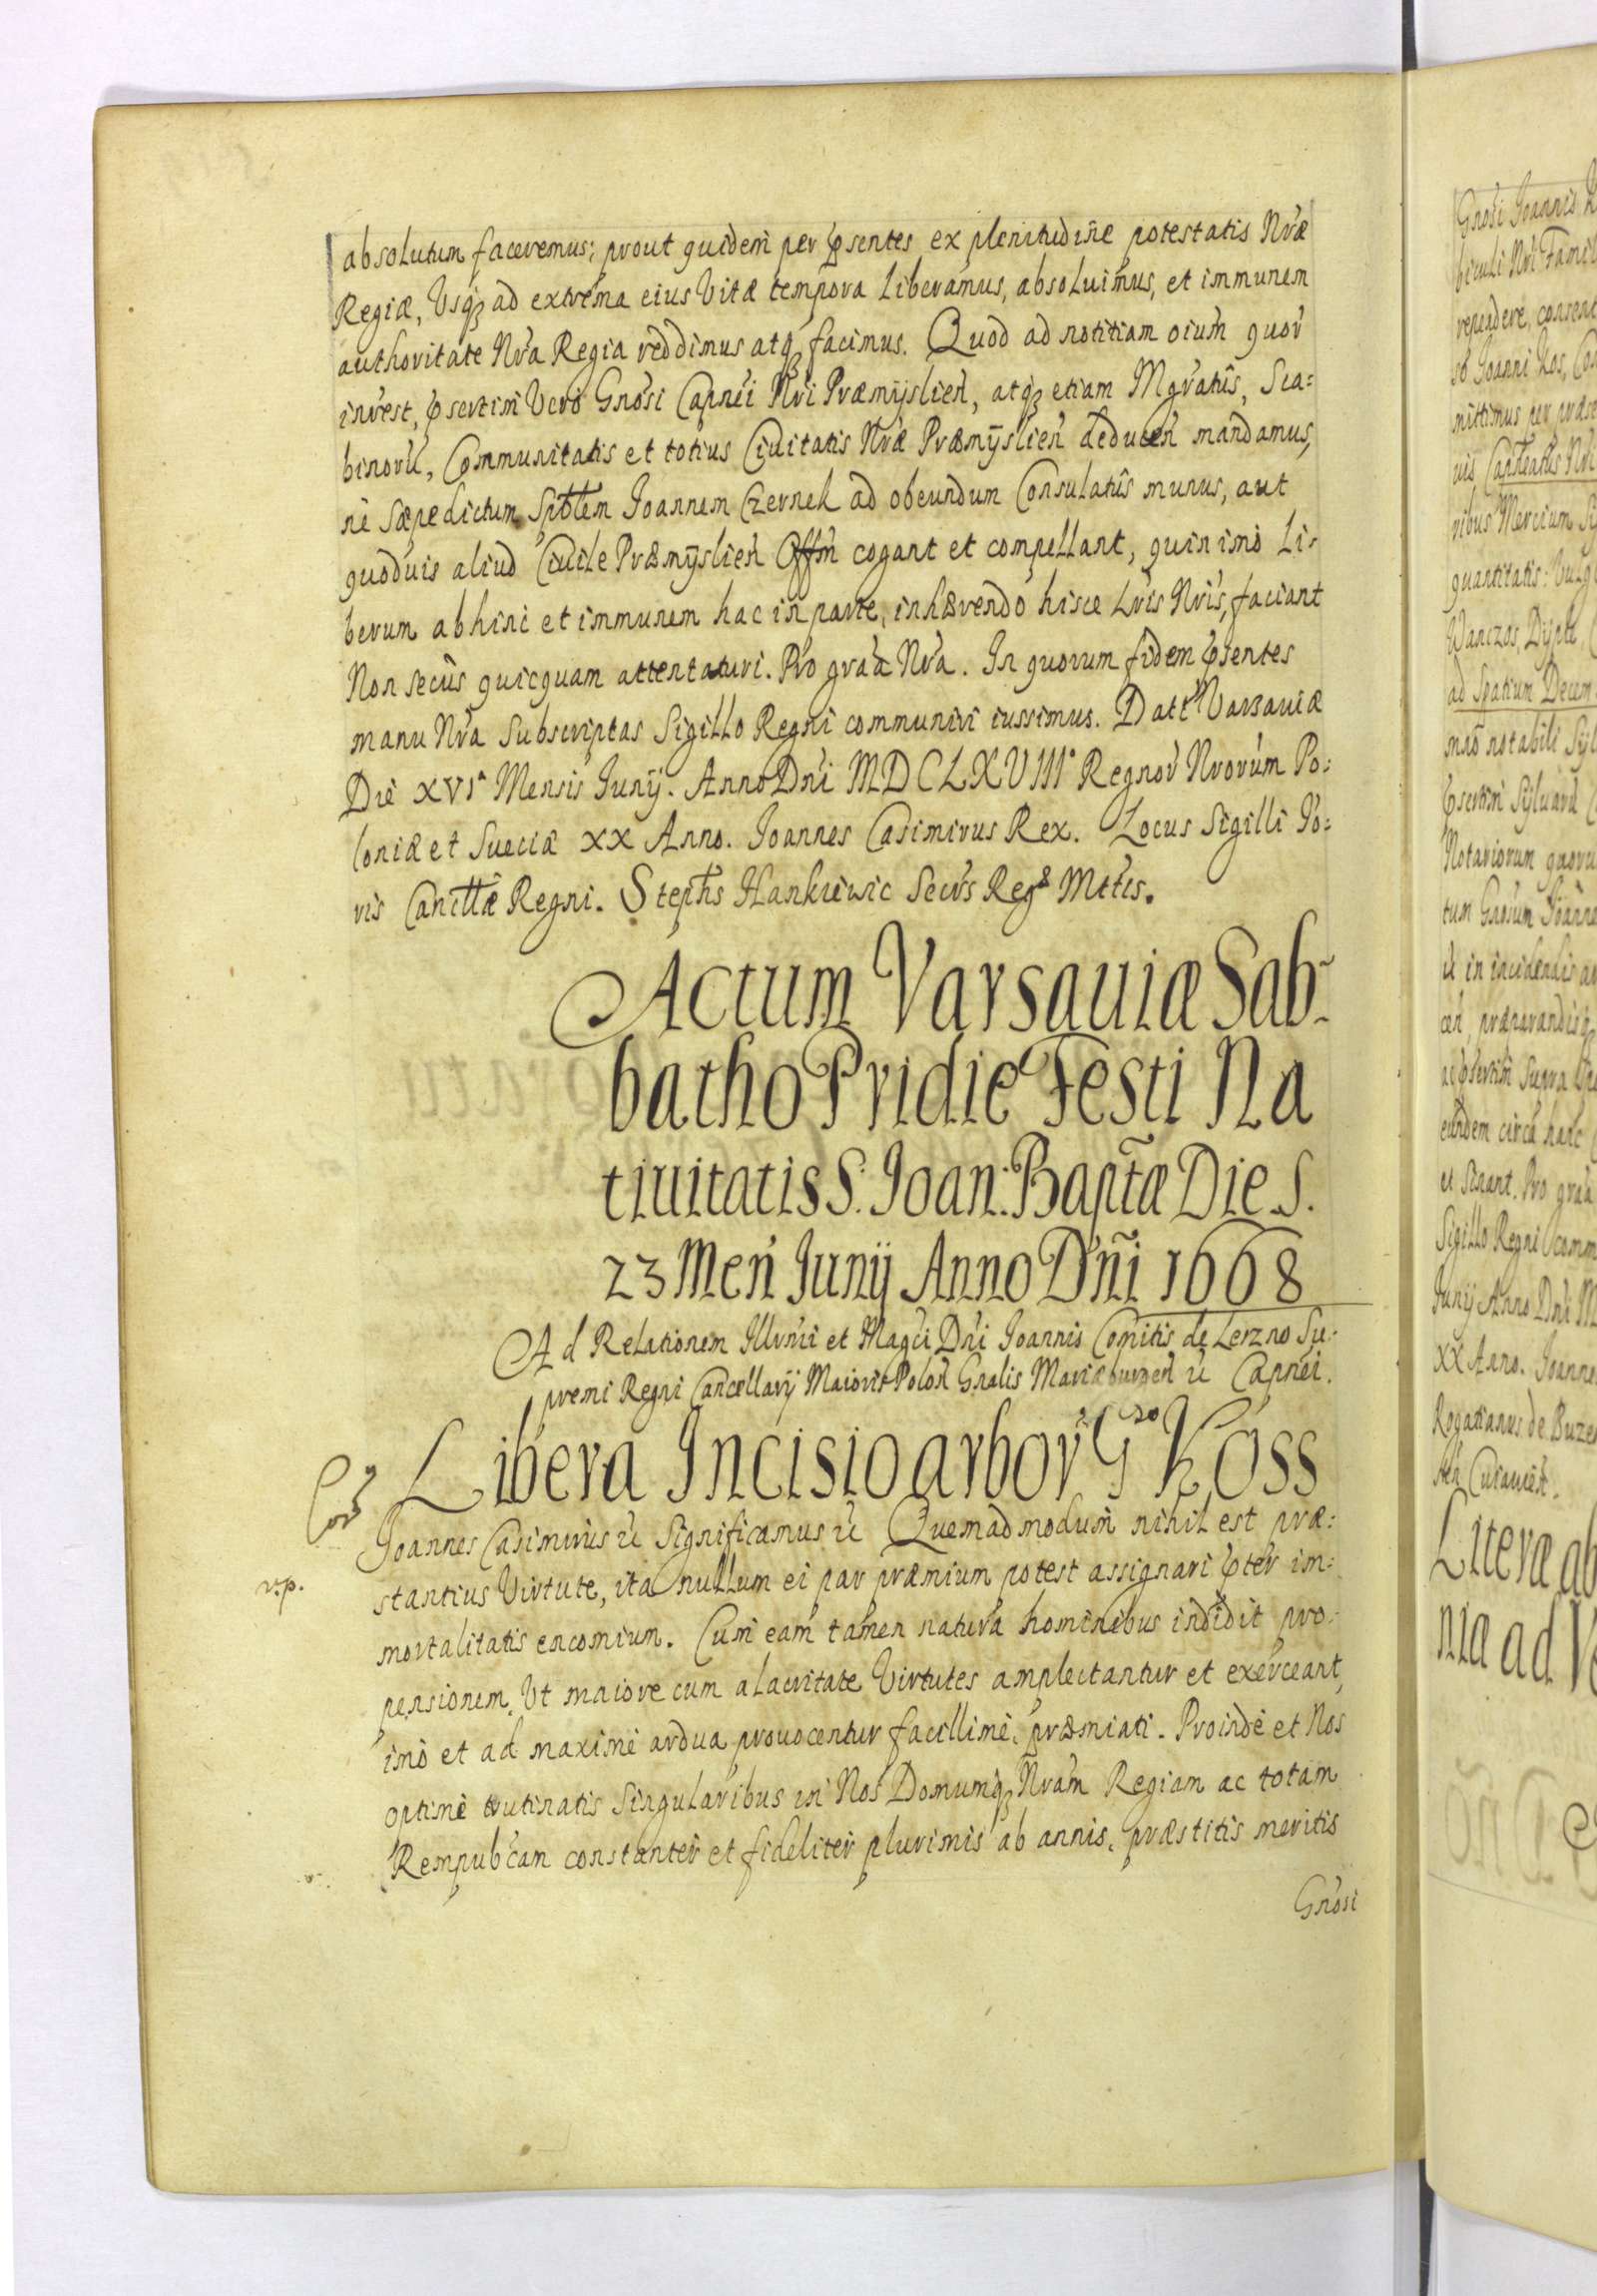 absolutum faceremus: prout quidem per p̃sentes ex plenitudine potestatis Nr̃æ
Regiæ, Usq3 ad extrema eius Vitæ tempora Liberamus, absoluimus, et immunem
authoritate Nr̃a Regia reddimus atq3 facimus. Quod ad notitiam oium̃ quor̃
inrest, p̃sertim Vero Gnõsi Capnẽi Nr̃i Præmysliẽn, atq3 etiam Mgr̃atus, Sca=
binorũ, Communitatis et totius Ciuitatis Nr̃æ Præmysliẽn deducẽn mandamus,
ne sæpedictum Spbtlem Joannem Czernek ad obeundum Consulatus munus, aut
quoduis aliud Ciuile Præmysliẽn Offm̃ cogant et compellant, quin imo Li-
berum abhinc et immunem hac in parte, inhærendo hisce Lr̃is Nr̃is, faciant
Non secus quicquam attentaturi. Pro gra͂a Nr̃a. In quorum fidem p̃sentes
manu Nr̃a Subscriptas Sigillo Regni communiri iussimus. Datt Varsauiæ
Die XVIᵃ Mensis Junij. Anno Dñi MDCLXVIII° Regnor̃ Nr̃orum Po=
loniæ et Sueciæ XX Anno. Joannes Casimirus Rex. Locus Sigilli Io=
ris Cancttæ Regni. Stephs Hankiewic Secr̃s Regæ Mttis.
Actum Varsauiæ Sab-
batho Pridie Festi Na
tiuitatis S: Joan: Baptæ Die S.
23 Meñ Junij Anno Dñi 1668
Ad Relationem Illvmi et Magci Dñi Joannis Comitis de Leszno Su-
premi Regni Cancellarij Maioris Polon̄ Gnalis Mariæburgeñ ũ Capnẽi.
Libera Incisio arbor̃ Gzo Koss
Joannes Casimirus ũ Significamus ũ Quemadmodum nihil est præ=
v.p.
stantius Virtute, ita nullum ei par præmium potest assignari p̃ter im=
mortalitatis encomium. Cum eam tamen natura hominibus indidit pro-
pensionem, Ut maiore cum alacritate Virtutes amplectantur et exerceant,
imo et ad maxime ardua prouocentur facillime, præmiati. Proinde et Nos
optime trutinatis Singularibus in Nos Domumq3 Nr̃am Regiam ac totam
Rempubcam constanter et fideliter plurimis ab annis, præstitis meritis
Gnõsi
Gnõsi Joannis
biculi Nr̃i Famil
rependere, consent
so Joanni Kos, Co
mittimus per præse
uis Capneatus Nr̃i
nibus Mercium
quantitatis: Vulg
Wanczos, Dyple,
ad Spatium Decem
notabili Syl
p̃sertim Syluarũ
Notariorum quoru
tum Gnosum Joanne
in incidendis
præparandisq3
p̃sertim Supra
eundem circa hanc
et Sinant. Pro gra͂a
Sigillo Regni comm
Junij Anno Dñi M
XX Anno. Joanne
Rogatianus de Buze
Curauiẽn.
Literæ ab
nia ad Ve